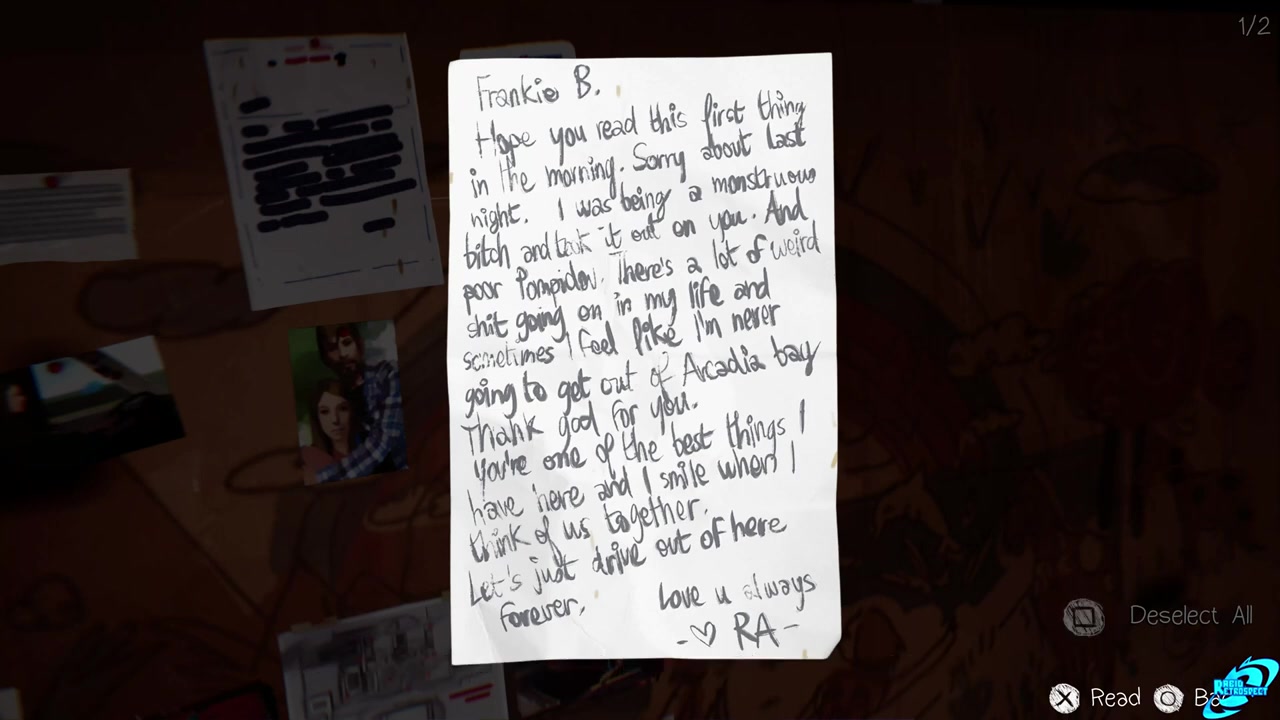 1/2
Frankie B.
Hope you read this first thing
in the morning. Sorry about last
night. I was being a monstruous
bitch and took it out on you. And
poor Pompidou. There's a lot of weird
shit going on in my life and
sometimes I feel like I'm never
going to get out of Arcadia bay
Thank god for you.
You're one of the best things I
have here and I smile when I
think of us together.
Let's just drive out of here
forever.
Love u always
-♡ RA-
Deselect All
Read
RABID
RETROSPECT